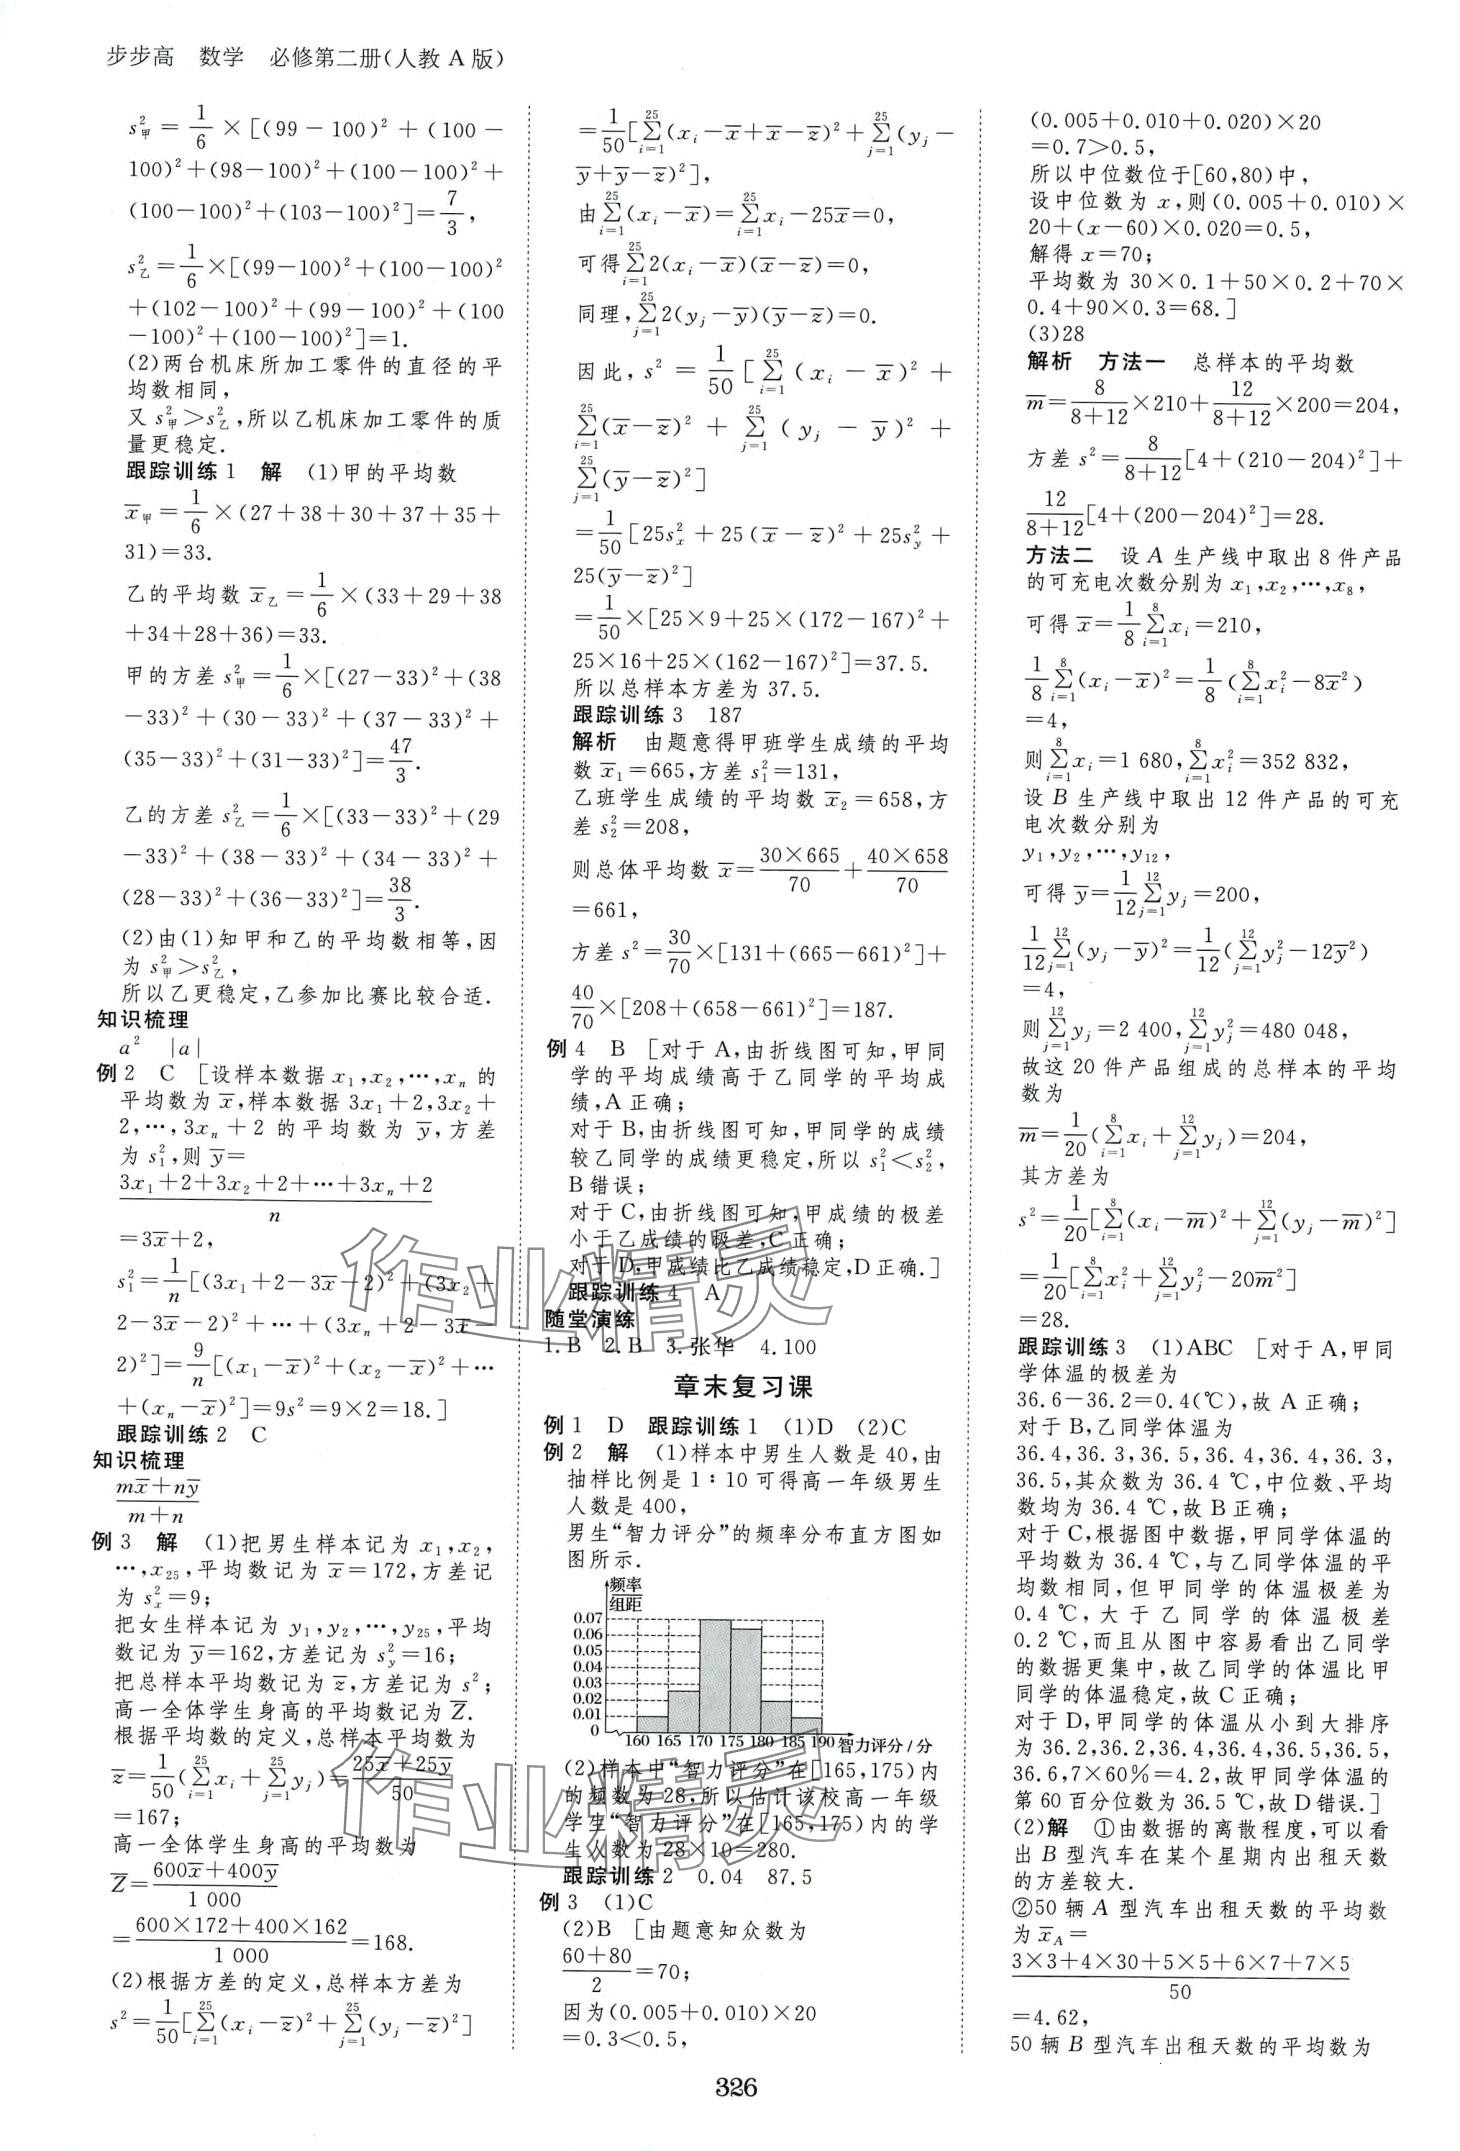 步步高 数学 必修第二册(人教 A 版)
s²甲=1/6×[(99-100)²+(100-
100)²+(98-100)²+(100-100)²+
(100-100)²+(103-100)²]=7/3,
s²乙=1/6×[(99-100)²+(100-100)²
+(102-100)²+(99-100)²+(100
-100)²+(100-100)²]=1.
(2)两台机床所加工零件的直径的平
均数相同,
又 s²甲>s²乙,所以乙机床加工零件的质
量更稳定.
跟踪训练1 解 (1)甲的平均数
x̄甲=1/6×(27+38+30+37+35+
31)=33.
乙的平均数 x̄乙=1/6×(33+29+38
+34+28+36)=33.
甲的方差 s²甲=1/6×[(27-33)²+(38
-33)²+(30-33)²+(37-33)²+
(35-33)²+(31-33)²]=47/3.
乙的方差 s²乙=1/6×[(33-33)²+(29
-33)²+(38-33)²+(34-33)²+
(28-33)²+(36-33)²]=38/3.
(2)由(1)知甲和乙的平均数相等,因
为 s²甲>s²乙,
所以乙更稳定,乙参加比赛比较合适.
知识梳理
a² |a|
例2 C [设样本数据 x₁,x₂,…,xₙ 的
平均数为 x̄,样本数据 3x₁+2,3x₂+
2,…,3xₙ+2 的平均数为 ȳ,方差
为 s₁²,则 ȳ=
(3x₁+2+3x₂+2+…+3xₙ+2)/n
=3x̄+2,
s₁²=1/n[(3x₁+2-3x̄-2)²+(3x₂+
2-3x̄-2)²+…+(3xₙ+2-3x̄-
2)²]=9/n[(x₁-x̄)²+(x₂-x̄)²+…
+(xₙ-x̄)²]=9s²=9×2=18.]
跟踪训练2 C
知识梳理
(mx̄+nȳ)/(m+n)
例3 解 (1)把男生样本记为 x₁,x₂,
…,x₂₅,平均数记为 x̄=172,方差记
为 sₓ²=9;
把女生样本记为 y₁,y₂,…,y₂₅,平均
数记为 ȳ=162,方差记为 s_y²=16;
把总样本平均数记为 z̄,方差记为 s²;
高一全体学生身高的平均数记为 Z̄.
根据平均数的定义,总样本平均数为
z̄=1/50(∑_{i=1}^{25}xᵢ+∑_{j=1}^{25}yⱼ)=(25x̄+25ȳ)/50
=167;
高一全体学生身高的平均数为
Z̄=(600x̄+400ȳ)/1 000
=(600×172+400×162)/1 000=168.
(2)根据方差的定义,总样本方差为
s²=1/50[∑_{i=1}^{25}(xᵢ-z̄)²+∑_{j=1}^{25}(yⱼ-z̄)²]
=1/50[∑_{i=1}^{25}(xᵢ-x̄+x̄-z̄)²+∑_{j=1}^{25}(yⱼ-
ȳ+ȳ-z̄)²],
由∑_{i=1}^{25}(xᵢ-x̄)=∑_{i=1}^{25}xᵢ-25x̄=0,
可得∑_{i=1}^{25}2(xᵢ-x̄)(x̄-z̄)=0,
同理,∑_{j=1}^{25}2(yⱼ-ȳ)(ȳ-z̄)=0.
因此,s²=1/50[∑_{i=1}^{25}(xᵢ-x̄)²+
∑_{i=1}^{25}(x̄-z̄)²+∑_{j=1}^{25}(yⱼ-ȳ)²+
∑_{j=1}^{25}(ȳ-z̄)²]
=1/50[25sₓ²+25(x̄-z̄)²+25s_y²+
25(ȳ-z̄)²]
=1/50×[25×9+25×(172-167)²+
25×16+25×(162-167)²]=37.5.
所以总样本方差为 37.5.
跟踪训练3 187
解析 由题意得甲班学生成绩的平均
数 x̄₁=665,方差 s₁²=131,
乙班学生成绩的平均数 x̄₂=658,方
差 s₂²=208,
则总体平均数 x̄=30×665/70+40×658/70
=661,
方差 s²=30/70×[131+(665-661)²]+
40/70×[208+(658-661)²]=187.
例4 B [对于 A,由折线图可知,甲同
学的平均成绩高于乙同学的平均成
绩,A 正确;
对于 B,由折线图可知,甲同学的成绩
较乙同学的成绩更稳定,所以 s₁²<s₂²,
B 错误;
对于 C,由折线图可知,甲成绩的极差
小于乙成绩的极差,C 正确;
对于 D,甲成绩比乙成绩稳定,D 正确.]
跟踪训练4 A
随堂演练
1.B 2.B 3.张华 4.100
章末复习课
例1 D 跟踪训练1 (1)D (2)C
例2 解 (1)样本中男生人数是 40,由
抽样比例是 1∶10 可得高一年级男生
人数是 400,
男生“智力评分”的频率分布直方图如
图所示.
频率/组距
0.07
0.06
0.05
0.04
0.03
0.02
0.01
0
160 165 170 175 180 185 190 智力评分/分
(2)样本中“智力评分”在[165,175)内
的频数为 28,所以估计该校高一年级
学生“智力评分”在[165,175)内的学
生人数为 28×10=280.
跟踪训练2 0.04 87.5
例3 (1)C
(2)B [由题意知众数为
(60+80)/2=70;
因为(0.005+0.010)×20
=0.3<0.5,
(0.005+0.010+0.020)×20
=0.7>0.5,
所以中位数位于[60,80)中,
设中位数为 x,则(0.005+0.010)×
20+(x-60)×0.020=0.5,
解得 x=70;
平均数为 30×0.1+50×0.2+70×
0.4+90×0.3=68.]
(3)28
解析 方法一 总样本的平均数
m̄=8/(8+12)×210+12/(8+12)×200=204,
方差 s²=8/(8+12)[4+(210-204)²]+
12/(8+12)[4+(200-204)²]=28.
方法二 设 A 生产线中取出 8 件产品
的可充电次数分别为 x₁,x₂,…,x₈,
可得 x̄=1/8∑_{i=1}^{8}xᵢ=210,
1/8∑_{i=1}^{8}(xᵢ-x̄)²=1/8(∑_{i=1}^{8}xᵢ²-8x̄²)
=4,
则∑_{i=1}^{8}xᵢ=1 680,∑_{i=1}^{8}xᵢ²=352 832,
设 B 生产线中取出 12 件产品的可充
电次数分别为
y₁,y₂,…,y₁₂,
可得 ȳ=1/12∑_{j=1}^{12}yⱼ=200,
1/12∑_{j=1}^{12}(yⱼ-ȳ)²=1/12(∑_{j=1}^{12}yⱼ²-12ȳ²)
=4,
则∑_{j=1}^{12}yⱼ=2 400,∑_{j=1}^{12}yⱼ²=480 048,
故这 20 件产品组成的总样本的平均
数为
m̄=1/20(∑_{i=1}^{8}xᵢ+∑_{j=1}^{12}yⱼ)=204,
其方差为
s²=1/20[∑_{i=1}^{8}(xᵢ-m̄)²+∑_{j=1}^{12}(yⱼ-m̄)²]
=1/20[∑_{i=1}^{8}xᵢ²+∑_{j=1}^{12}yⱼ²-20m̄²]
=28.
跟踪训练3 (1)ABC [对于 A,甲同
学体温的极差为
36.6-36.2=0.4(℃),故 A 正确;
对于 B,乙同学体温为
36.4,36.3,36.5,36.4,36.4,36.3,
36.5,其众数为 36.4 ℃,中位数、平均
数均为 36.4 ℃,故 B 正确;
对于 C,根据图中数据,甲同学体温的
平均数为 36.4 ℃,与乙同学体温的平
均数相同,但甲同学的体温极差为
0.4 ℃,大于乙同学的体温极差
0.2 ℃,而且从图中容易看出乙同学
的数据更集中,故乙同学的体温比甲
同学的体温稳定,故 C 正确;
对于 D,甲同学的体温从小到大排序
为 36.2,36.2,36.4,36.4,36.5,36.5,
36.6,7×60%=4.2,故甲同学体温的
第 60 百分位数为 36.5 ℃,故 D 错误.]
(2)解 ①由数据的离散程度,可以看
出 B 型汽车在某个星期内出租天数
的方差较大.
②50 辆 A 型汽车出租天数的平均数
为 x̄_A=
(3×3+4×30+5×5+6×7+7×5)/50
=4.62,
50 辆 B 型汽车出租天数的平均数为
326
作业精灵
作业精灵